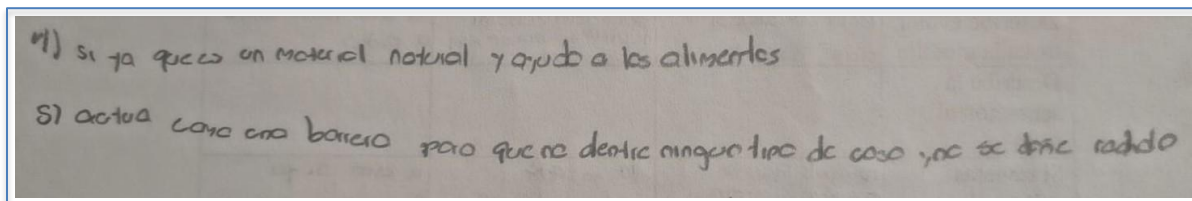 4) si ya que es un material natural y ayuda a los alimentos
5) actua como una barrera para que no dentre ningun tipo de cosa y no se dañe